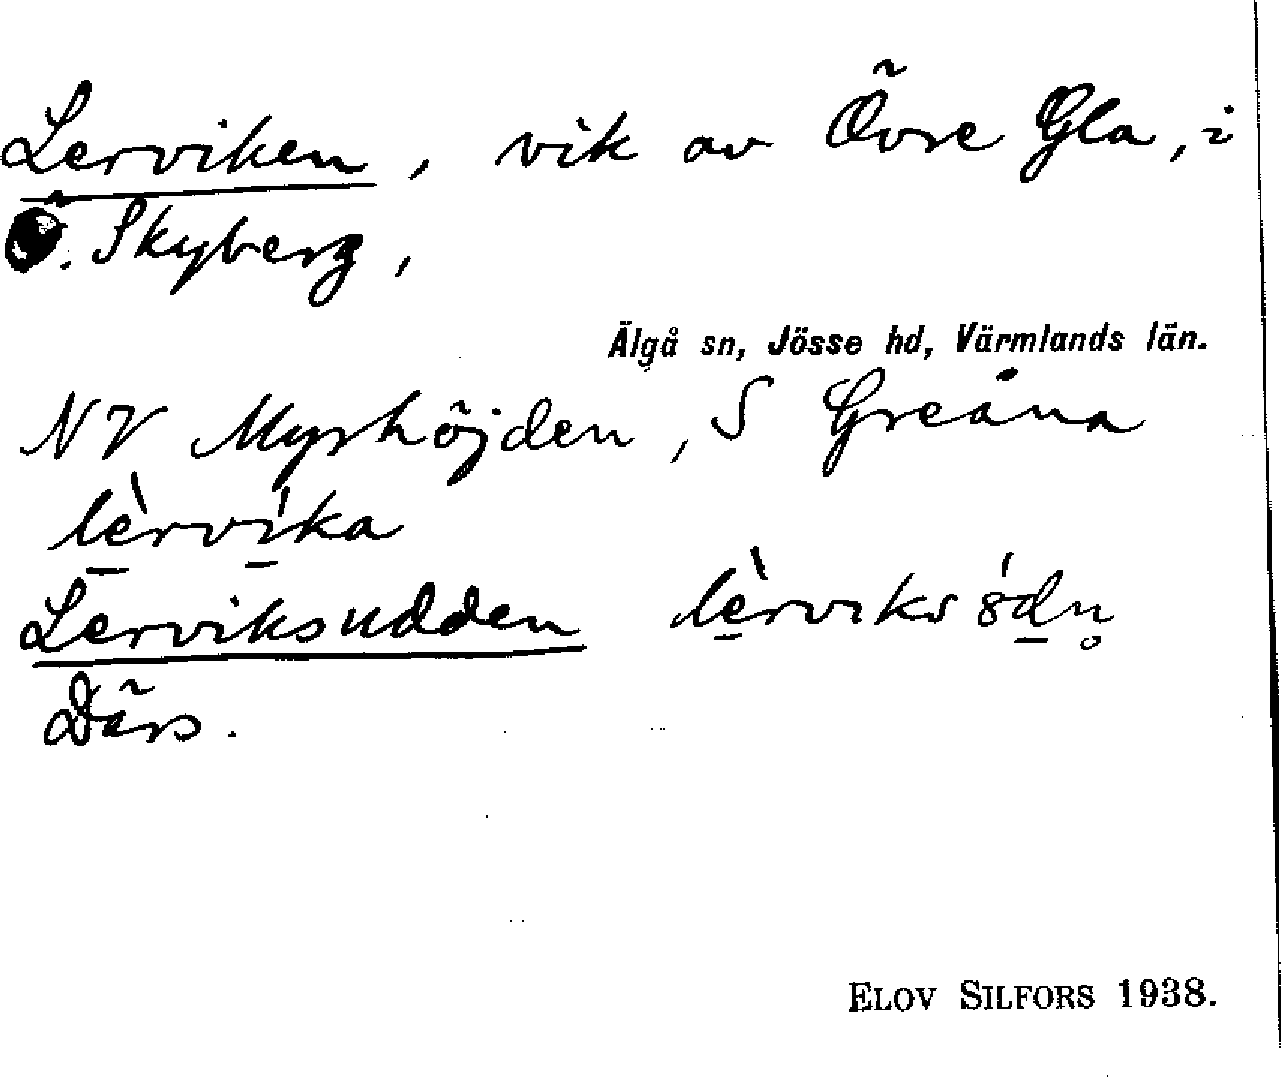 Lerviken, vik av Övre Gla, i
Ö. Skyberg,
Älgå sn, Jösse hd, Värmlands län.
NV Myrhöjden, S Greåna
lè̠rví̠ka
Lerviksudden lè̠rvıks ȣ́d̠n̥
Därs.
ELOV SILFORS 1938.